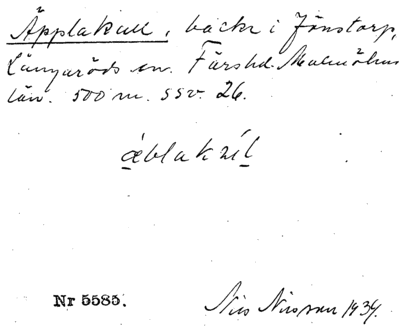 Äpplakull, backe i Jönstorp,
Långaröds sn. Färs hd. Malmöhus
län. 500 m. SSV. 26.
æblakúl
Nr 5585.
Nils Nilsson 1934.